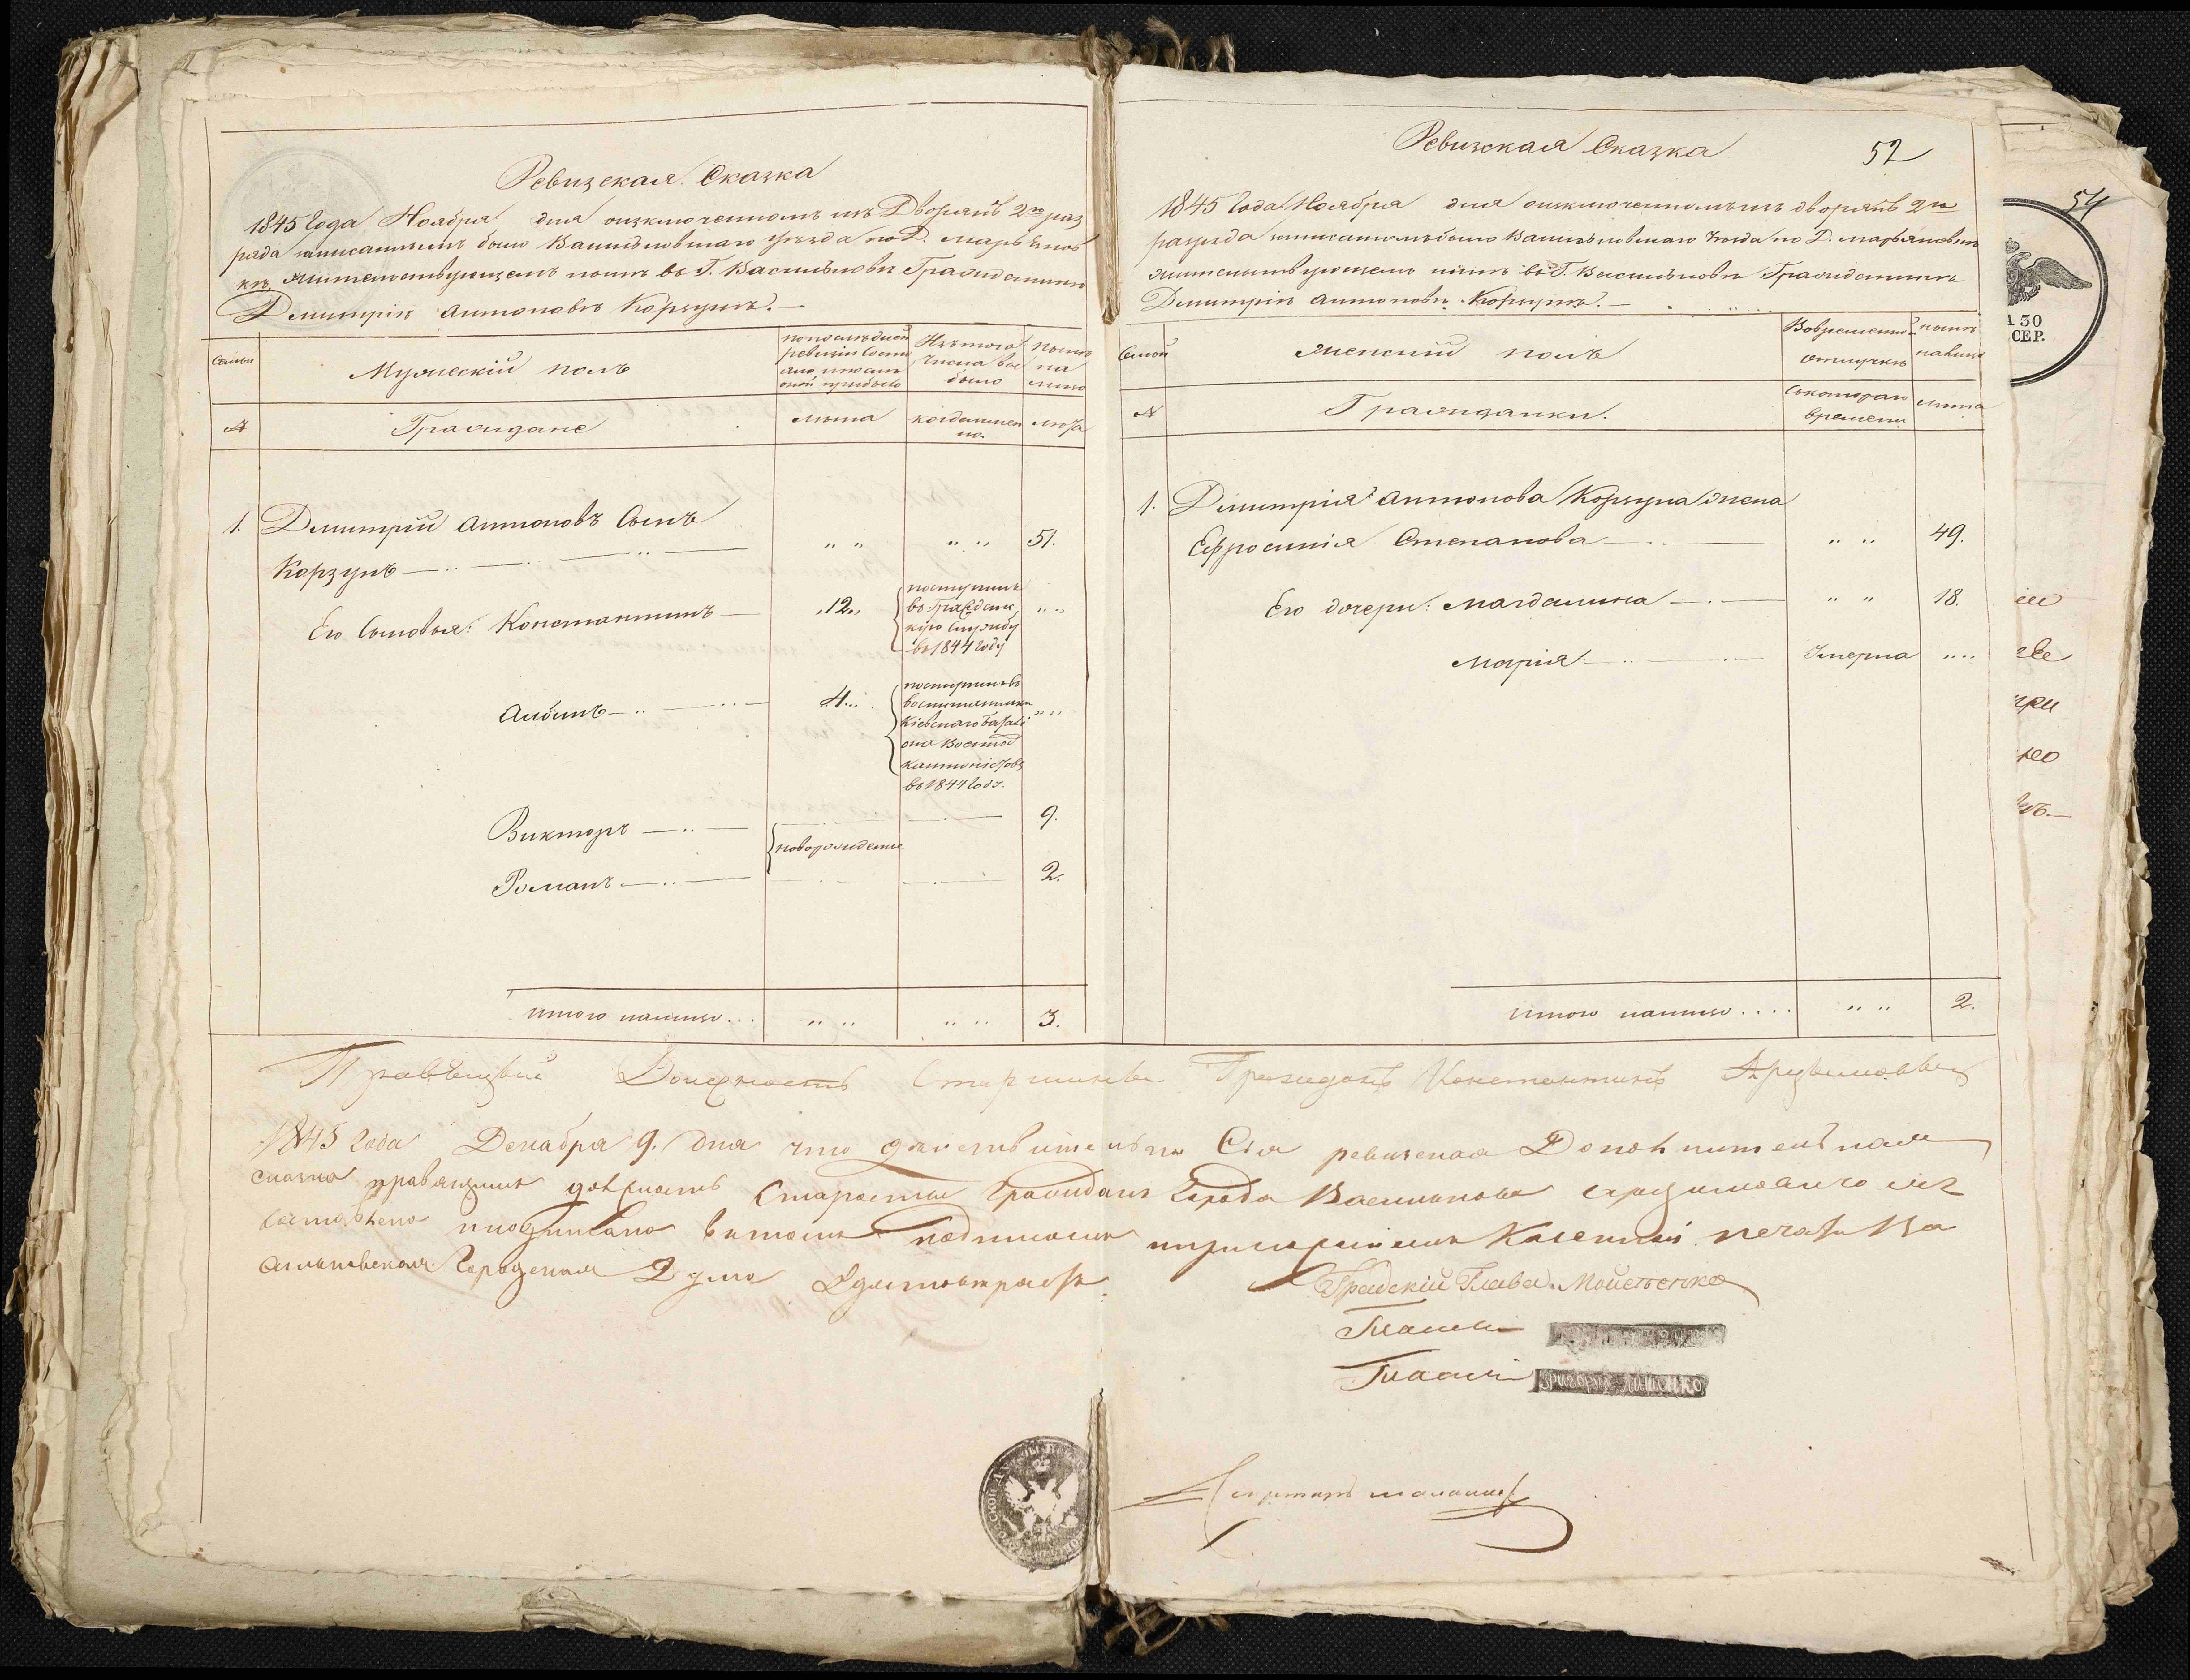 Ревизская Сказка
1845 Года Ноября дня оизключенномъ изъ Дворянъ 2го раз
ряда записаннымъ было Васильковского уѣзда по Д. Марьянов
кѣ жительствующемъ нынѣ въ Г. Васильковѣ Гражданинѣ
Дмитріѣ Антоновѣ Корзунѣ.
Семьи
Мужескій полъ
По послѣдней
ревизіи состо
яло и послѣ
оной прибыло
Изъ того
числа вы
было
Нынѣ
на
лицо
№
Граждане
лѣта
когда имен
но.
лѣта
1. Дмитрій Антоновъ Сынъ
Корзунъ „ „ „ „ 51.
Его Сыновья: Константинъ „12„
поступилъ
въ Граждан
кую Службу
въ 1844 году
„ „
Альбинъ 4„
поступилъ въ
воспитанники
Кіевского Батали
она Военныхъ
кантонистовъ
въ 1844 Году.
„ „
Викторъ 9.
новорожденные
Романъ 2.
Итого налицо... „ „ „ „ 3.
Ревизская Сказка
52
1845 Года Ноября дня оизключенномъ изъ дворянъ 2го
разряда записаномъ было Васильковского уѣзда по Д. Марьяновкѣ
жительствующемъ нынѣ въ Г. Васильковѣ Гражданинѣ
Дмитріѣ Антоновѣ Корзунѣ.
Семьи
Женскій полъ
Во временной
отлучкѣ
нынѣ
налицо
№
Гражданки.
Съ котораго
времени
лѣта
1. Дмитрія Антонова Корзуна жена
Ефросинія Степанова „ „ 49.
Его дочери: Магдалина „ „ 18.
Марія Умерла „ „
Итого налицо.... „ „ 2.
Правящій Должность Старшины Гражданъ Константинъ
1845 года Декабря 9. дня что дѣйствительно Сія ревизская Дополнительная
сказка правящимъ должность Старосты Гражданъ Города Василькова
составлена и подписана въ томъ подписомъ и приложеніемъ Казенной печати Ва
сильковская Городская Дума Удостовѣряетъ.
Градскій Глава Мойсѣенко
Гласный
Гласный
григорій
54
А 30
СЕР.